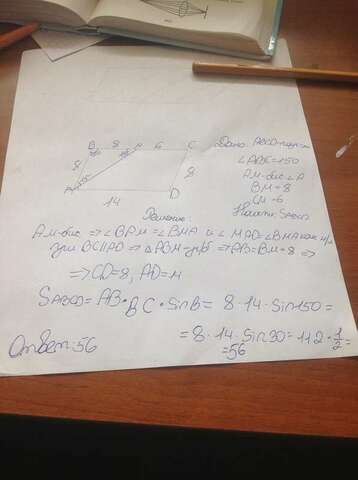 B 8 M 6 C
Дано: ABCD-пар-м
8
8
∠ABC=150
A
AM-бис ∠A
14
D
BM=8
CM=6
Решение:
Найти: SABCD
AM-бис ⇒ ∠BAM=∠BMA и ∠MAD=∠BMA как н/л
при BC||AD ⇒ △ABM-р/б ⇒ AB=BM=8 ⇒
⇒ CD=8, AD=14
SABCD= AB·BC·SinB= 8·14·Sin150=
= 8·14·Sin30= 112·1/2=
=56
Ответ:56